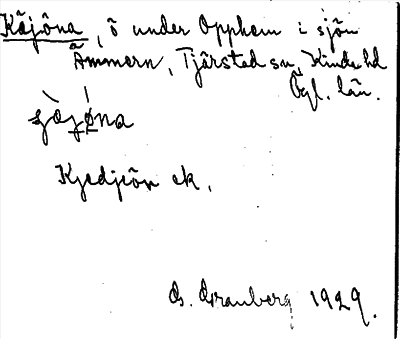 Käjöna, ö under Opphem i sjön
Ämmern, Tjärstad sn, Kinda hd
Ögl. län.
Kjedjeön ek.
G. Granberg 1929.